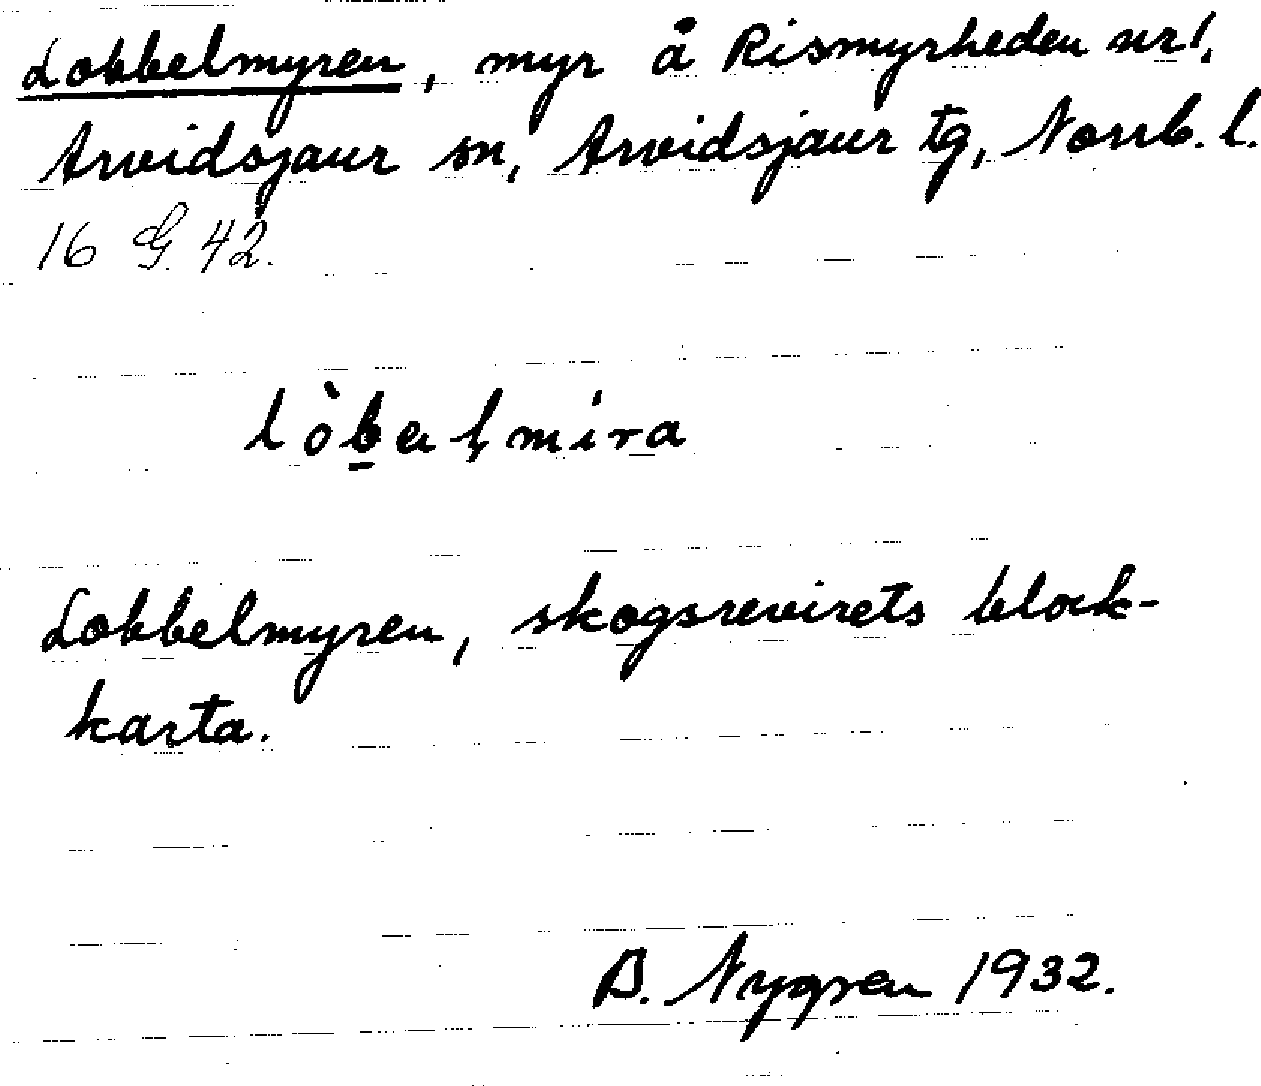 Lobbelmyren, myr å Rismyrheden nr 1,
Arvidsjaur sn, Arvidsjaur tg, Norrb. l.
16 G. 42.
lòb̲almira
Lobbelmyren, skogsrevirets block-
karta.
B. Nygren 1932.